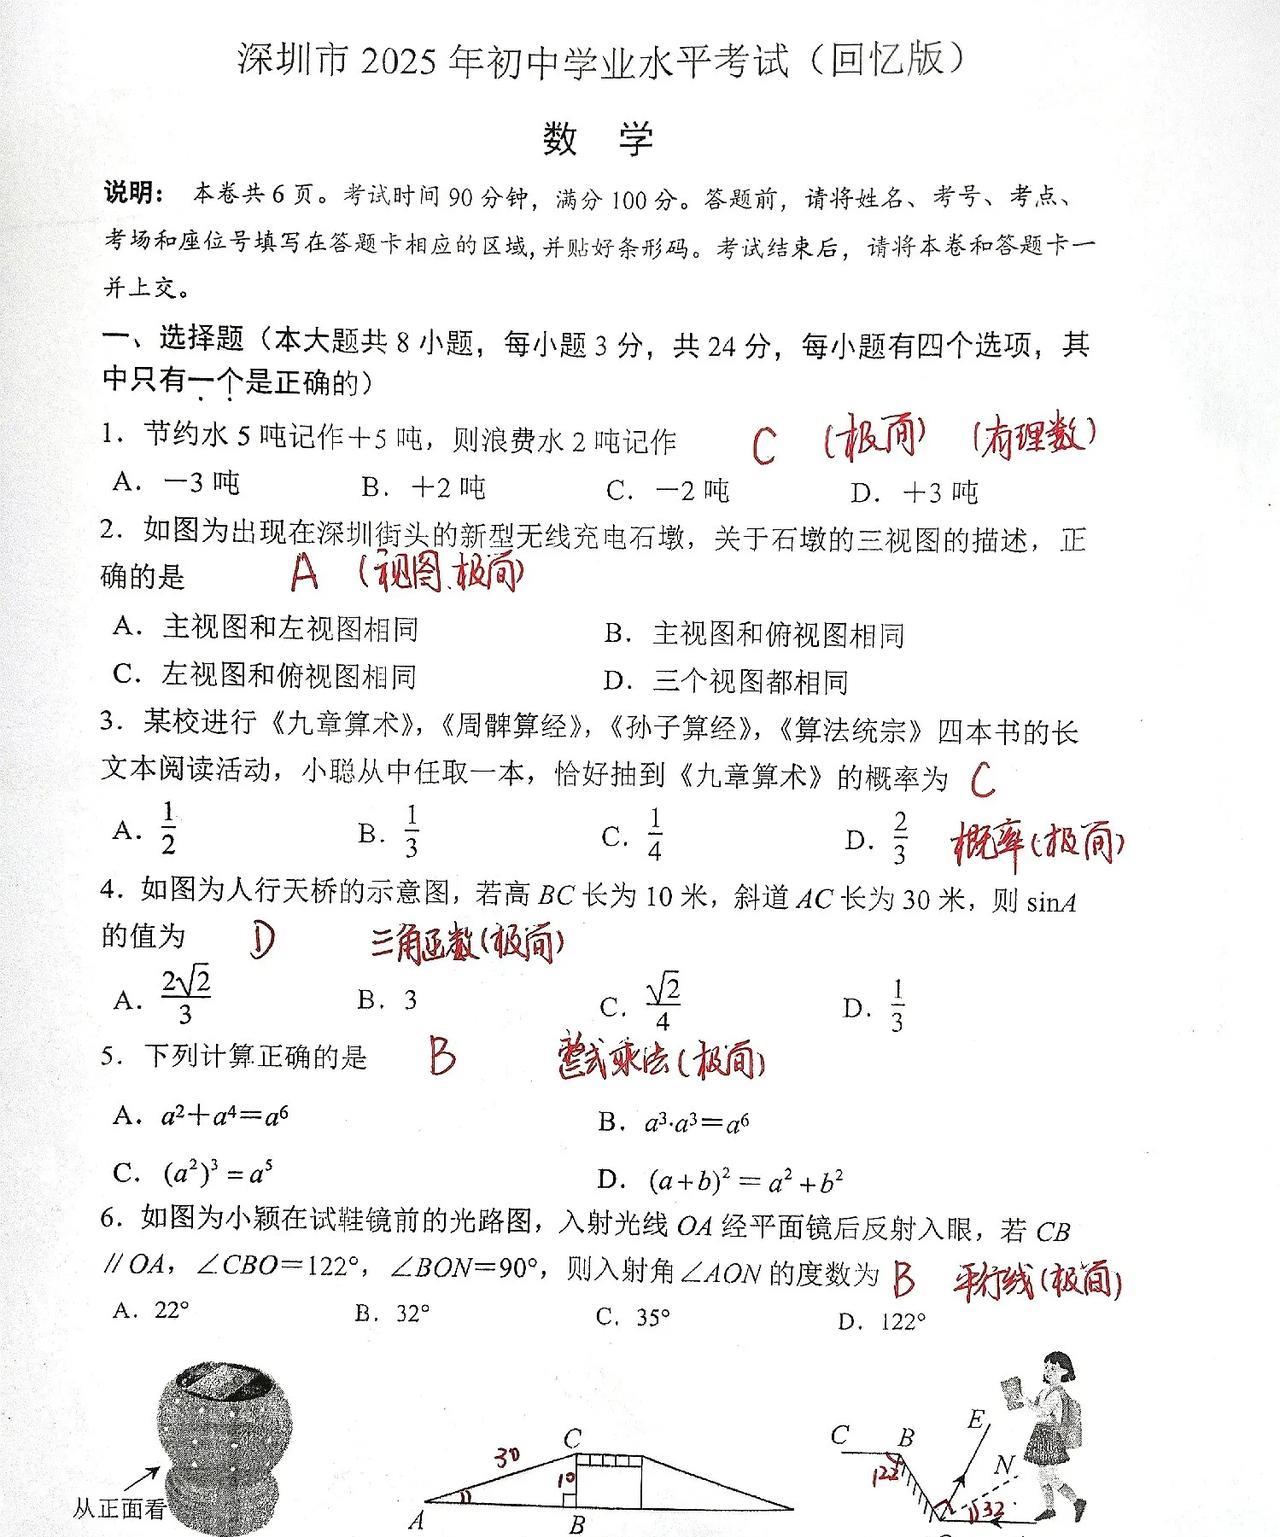 深圳市 2025 年初中学业水平考试（回忆版）
数 学
说明： 本卷共 6 页。考试时间 90 分钟，满分 100 分。答题前，请将姓名、考号、考点、
考场和座位号填写在答题卡相应的区域，并贴好条形码。考试结束后，请将本卷和答题卡一
并上交。
一、选择题（本大题共 8 小题，每小题 3 分，共 24 分，每小题有四个选项，其
中只有一个是正确的）
1．节约水 5 吨记作＋5 吨，则浪费水 2 吨记作 C （极简）（有理数）
A．－3 吨 B．＋2 吨 C．－2 吨 D．＋3 吨
2．如图为出现在深圳街头的新型无线充电石墩，关于石墩的三视图的描述，正
确的是 A （视图、极简）
A．主视图和左视图相同 B．主视图和俯视图相同
C．左视图和俯视图相同 D．三个视图都相同
3．某校进行《九章算术》，《周髀算经》，《孙子算经》，《算法统宗》四本书的长
文本阅读活动，小聪从中任取一本，恰好抽到《九章算术》的概率为 C
A．1/2 B．1/3 C．1/4 D．2/3 概率（极简）
4．如图为人行天桥的示意图，若高 BC 长为 10 米，斜道 AC 长为 30 米，则 sinA
的值为 D 三角函数（极简）
A．2√2/3 B．3 C．√2/4 D．1/3
5．下列计算正确的是 B 整式乘法（极简）
A．a²＋a⁴＝a⁶ B．a³·a³＝a⁶
C．(a²)³ = a⁵ D．(a+b)² = a² + b²
6．如图为小颖在试鞋镜前的光路图，入射光线 OA 经平面镜后反射入眼，若 CB
∥OA，∠CBO＝122°，∠BON＝90°，则入射角∠AON 的度数为 B 平行线（极简）
A．22° B．32° C．35° D．122°
从正面看
30
C
10
A
B
C
B
E
N
122
32